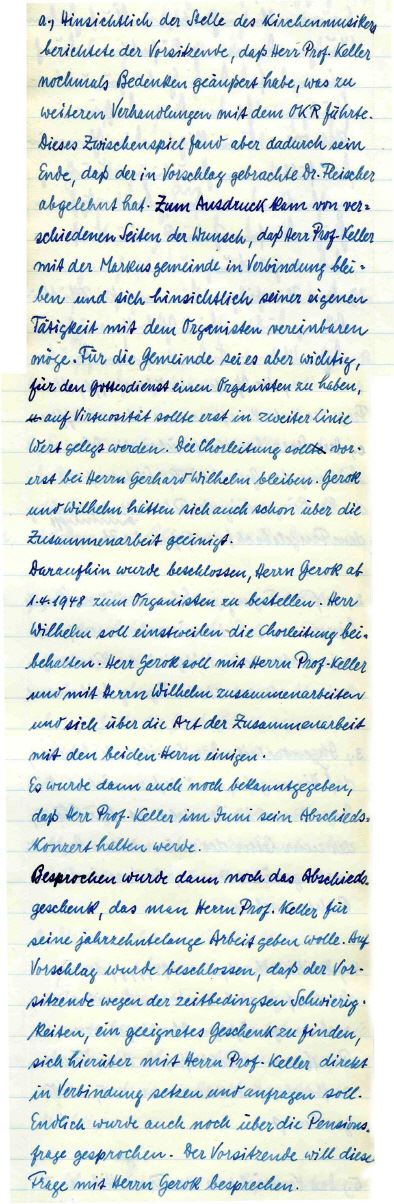 a., Hinsichtlich der Stelle des Kirchenmusikers
berichtete der Vorsitzende, daß Herr Prof. Keller
nochmals Bedenken geäußert habe, was zu
weiteren Verhandlungen mit dem OKR führte.
Dieses Zwischenspiel fand aber dadurch sein
Ende, daß der in Vorschlag gebrachte Dr. Fleischer
abgelehnt hat. Zum Ausdruck kam von ver=
schiedenen Seiten der Wunsch, daß Herr Prof. Keller
mit der Markusgemeinde in Verbindung blei=
ben und sich hinsichtlich seiner eigenen
Tätigkeit mit dem Organisten vereinbaren
möge. Für die Gemeinde sei es aber wichtig,
für den Gottesdienst einen Organisten zu haben,
auf Virtuosität sollte erst in zweiter Linie
Wert gelegt werden. Die Chorleitung sollte vor-
erst bei Herrn Gerhard Wilhelm bleiben. Gerok
und Wilhelm hätten sich auch schon über die
Zusammenarbeit geeinigt.
Daraufhin wurde beschlossen, Herrn Gerok ab
1.4.1948 zum Organisten zu bestellen. Herr
Wilhelm soll einstweilen die Chorleitung bei-
behalten. Herr Gerok soll mit Herrn Prof. Keller
und mit Herrn Wilhelm zusammenarbeiten
und sich über die Art der Zusammenarbeit
mit den beiden Herrn einigen.
Es wurde dann auch noch bekanntgegeben,
daß Herr Prof. Keller im Juni sein Abschieds=
konzert halten werde.
Besprochen wurde dann noch das Abschieds-
geschenk, das man Herrn Prof. Keller für
seine jahrzehntelange Arbeit geben wolle. Auf
Vorschlag wurde beschlossen, daß der Vor-
sitzende wegen der zeitbedingten Schwierig-
keiten, ein geeignetes Geschenk zu finden,
sich hierüber mit Herrn Prof. Keller direkt
in Verbindung setzen und anfragen soll.
Endlich wurde auch noch über die Pensions-
frage gesprochen. Der Vorsitzende will diese
Frage mit Herrn Gerok besprechen.